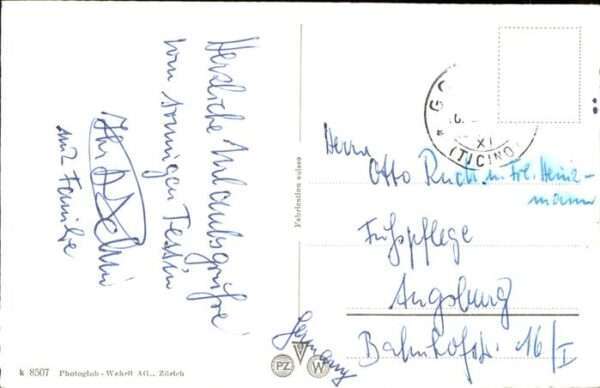 Herzliche Urlaubsgrüße
vom sonnigen Tessin
Ihr
mit Familie
k 8507 Photoglob-Wehrli AG., Zürich
Fabrication suisse
PZ W
G
XI
(TICINO)
Herrn
Otto Ruch u. Frl. Heinz-
mann
Fußpflege
Augsburg
Bahnhofstr. 16/I
Germany